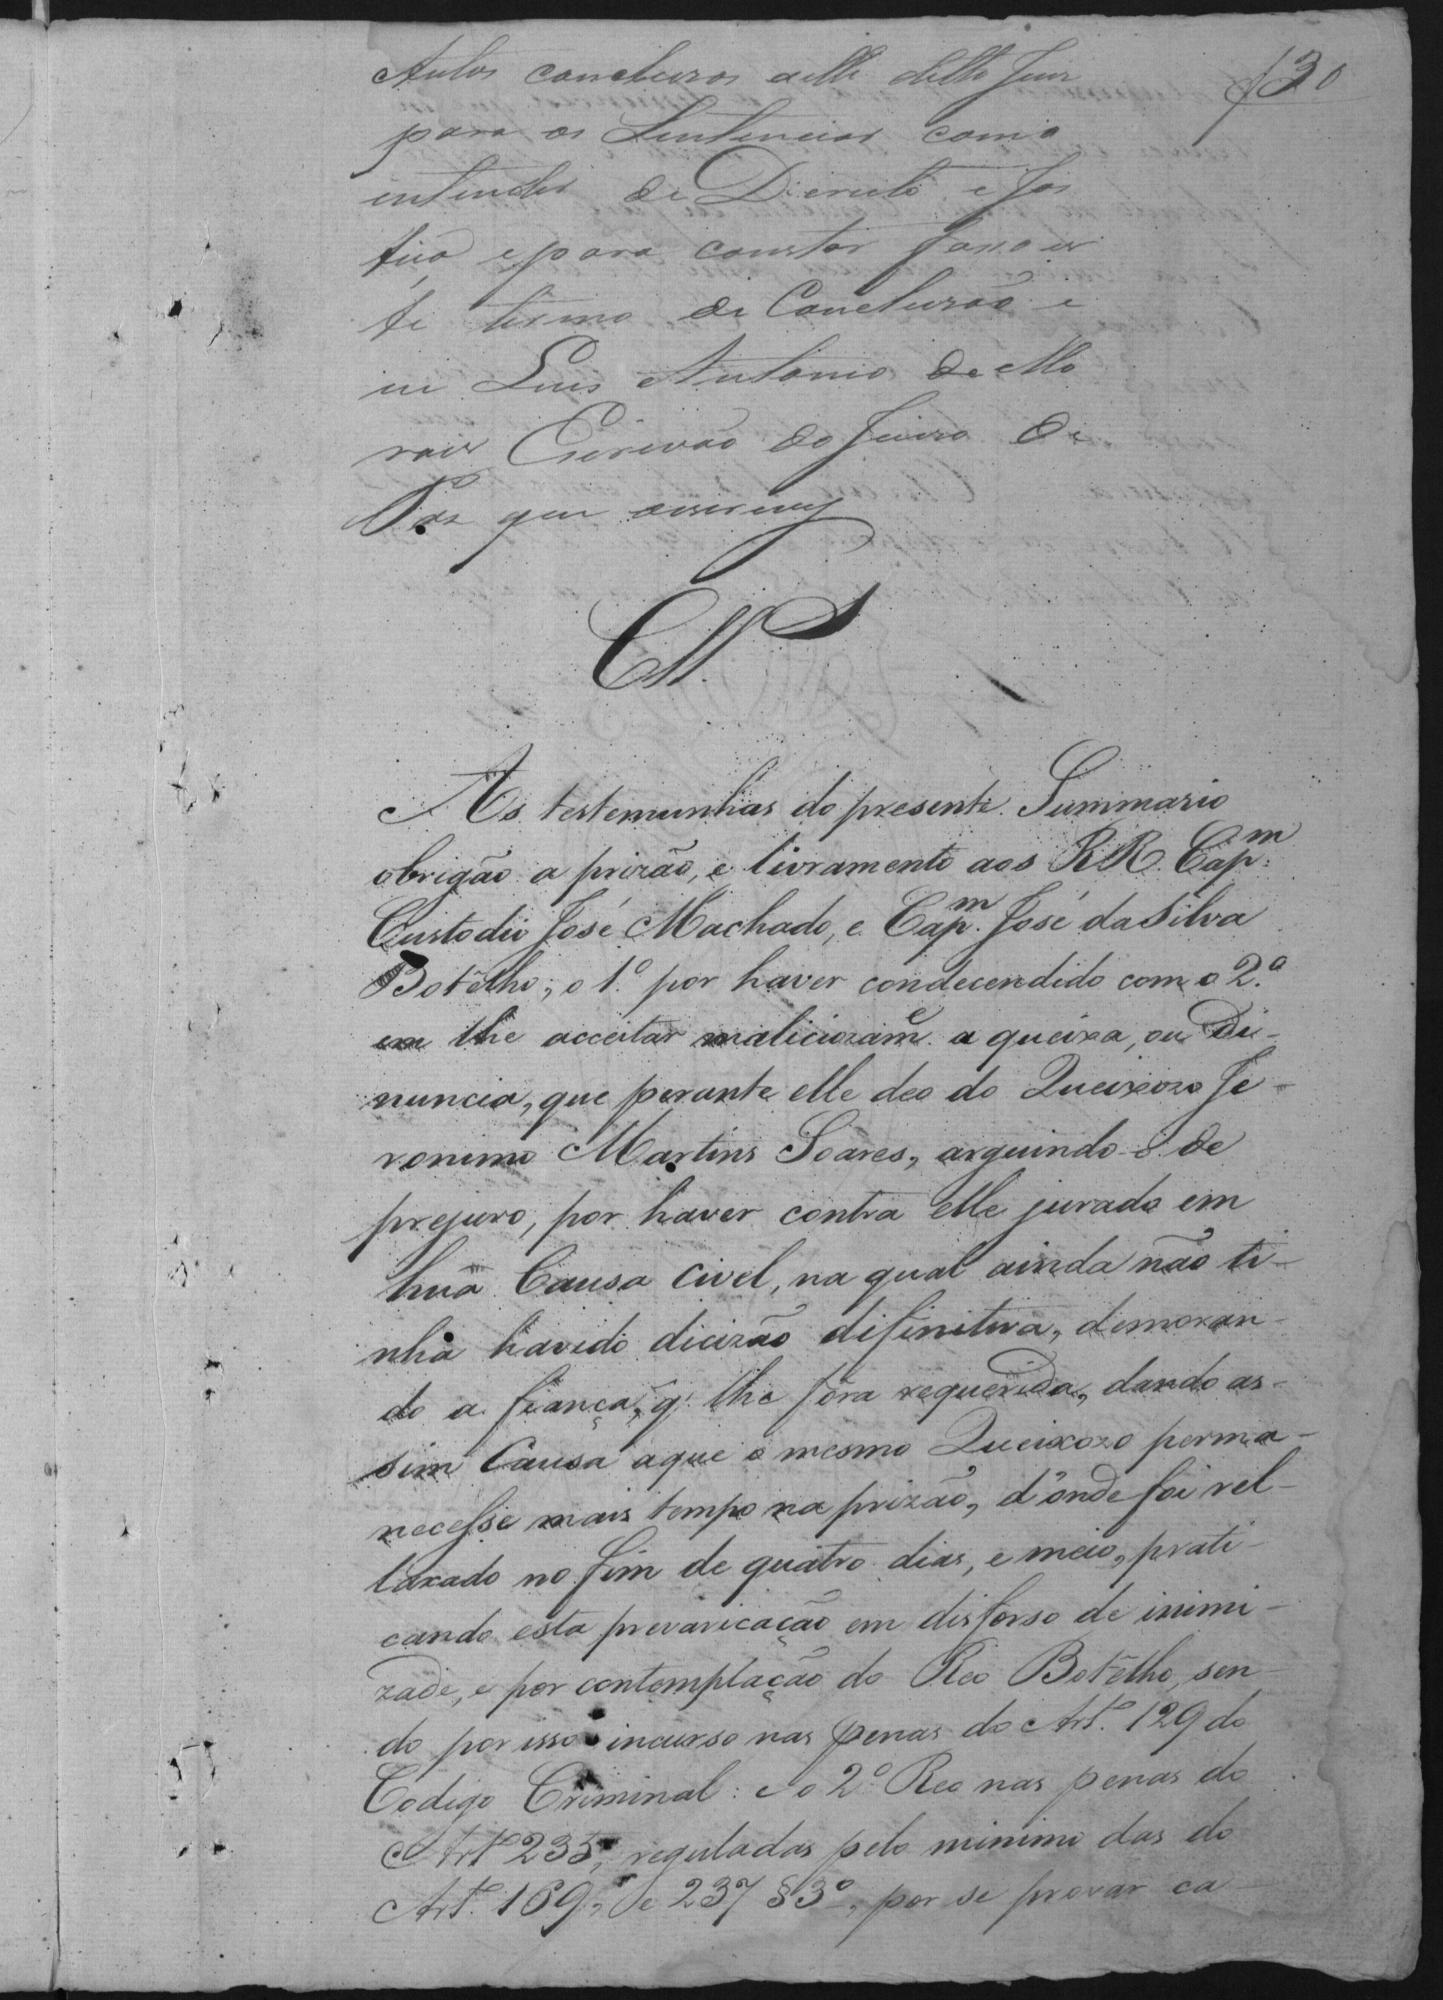 f 30
Autos concluzos aelle ditto Juiz
para os Sentenciar como
intender de Direito e Jus
tiça e para constar fasso es
te termo de Concluzão e
eu Luis Antonio de Mo
raes Escrivão do Juizo de
Paz que escrevy
Cllº
As testemunhas do presente Summario
obrigão a prizão, e livramento aos RR. Capm.
Custodio José Machado, e Capm. José da Silva
Botêlho; o 1.º por haver condecendido com o 2.º
em lhe acceitar maliciozame. a queixa, ou De-
nuncia, que perante elle deo do Queixozo Je-
ronimo Martins Soares, arguindo-o de
prejuro, por haver contra elle jurado em
huã Causa Civel, na qual ainda não ti-
nha havido dicizão difinitiva, demoran-
do a fiança, q' lhe fôra requerida, dando as-
sim Causa aque o mesmo Queixozo perma-
necesse mais tempo na prizão, d'onde foi rel-
laxado no fim de quatro dias, e meio, prati-
cando esta prevaricação em disforso de inimi-
zade, e por contemplação do Reo Botêlho, sen-
do por isso incurso nas penas do Art.º 129 do
Codigo Criminal: e o 2.º Reo nas penas do
Artº 235, reguladas pelo minimo das do
Art.º 169, e 237 § 3º, por se provar ca-